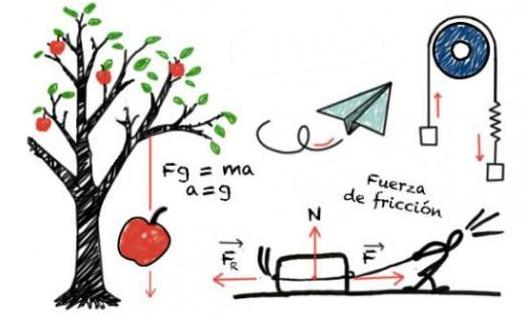 Fg = ma
a = g
Fuerza
de fricción
N
F_R
F